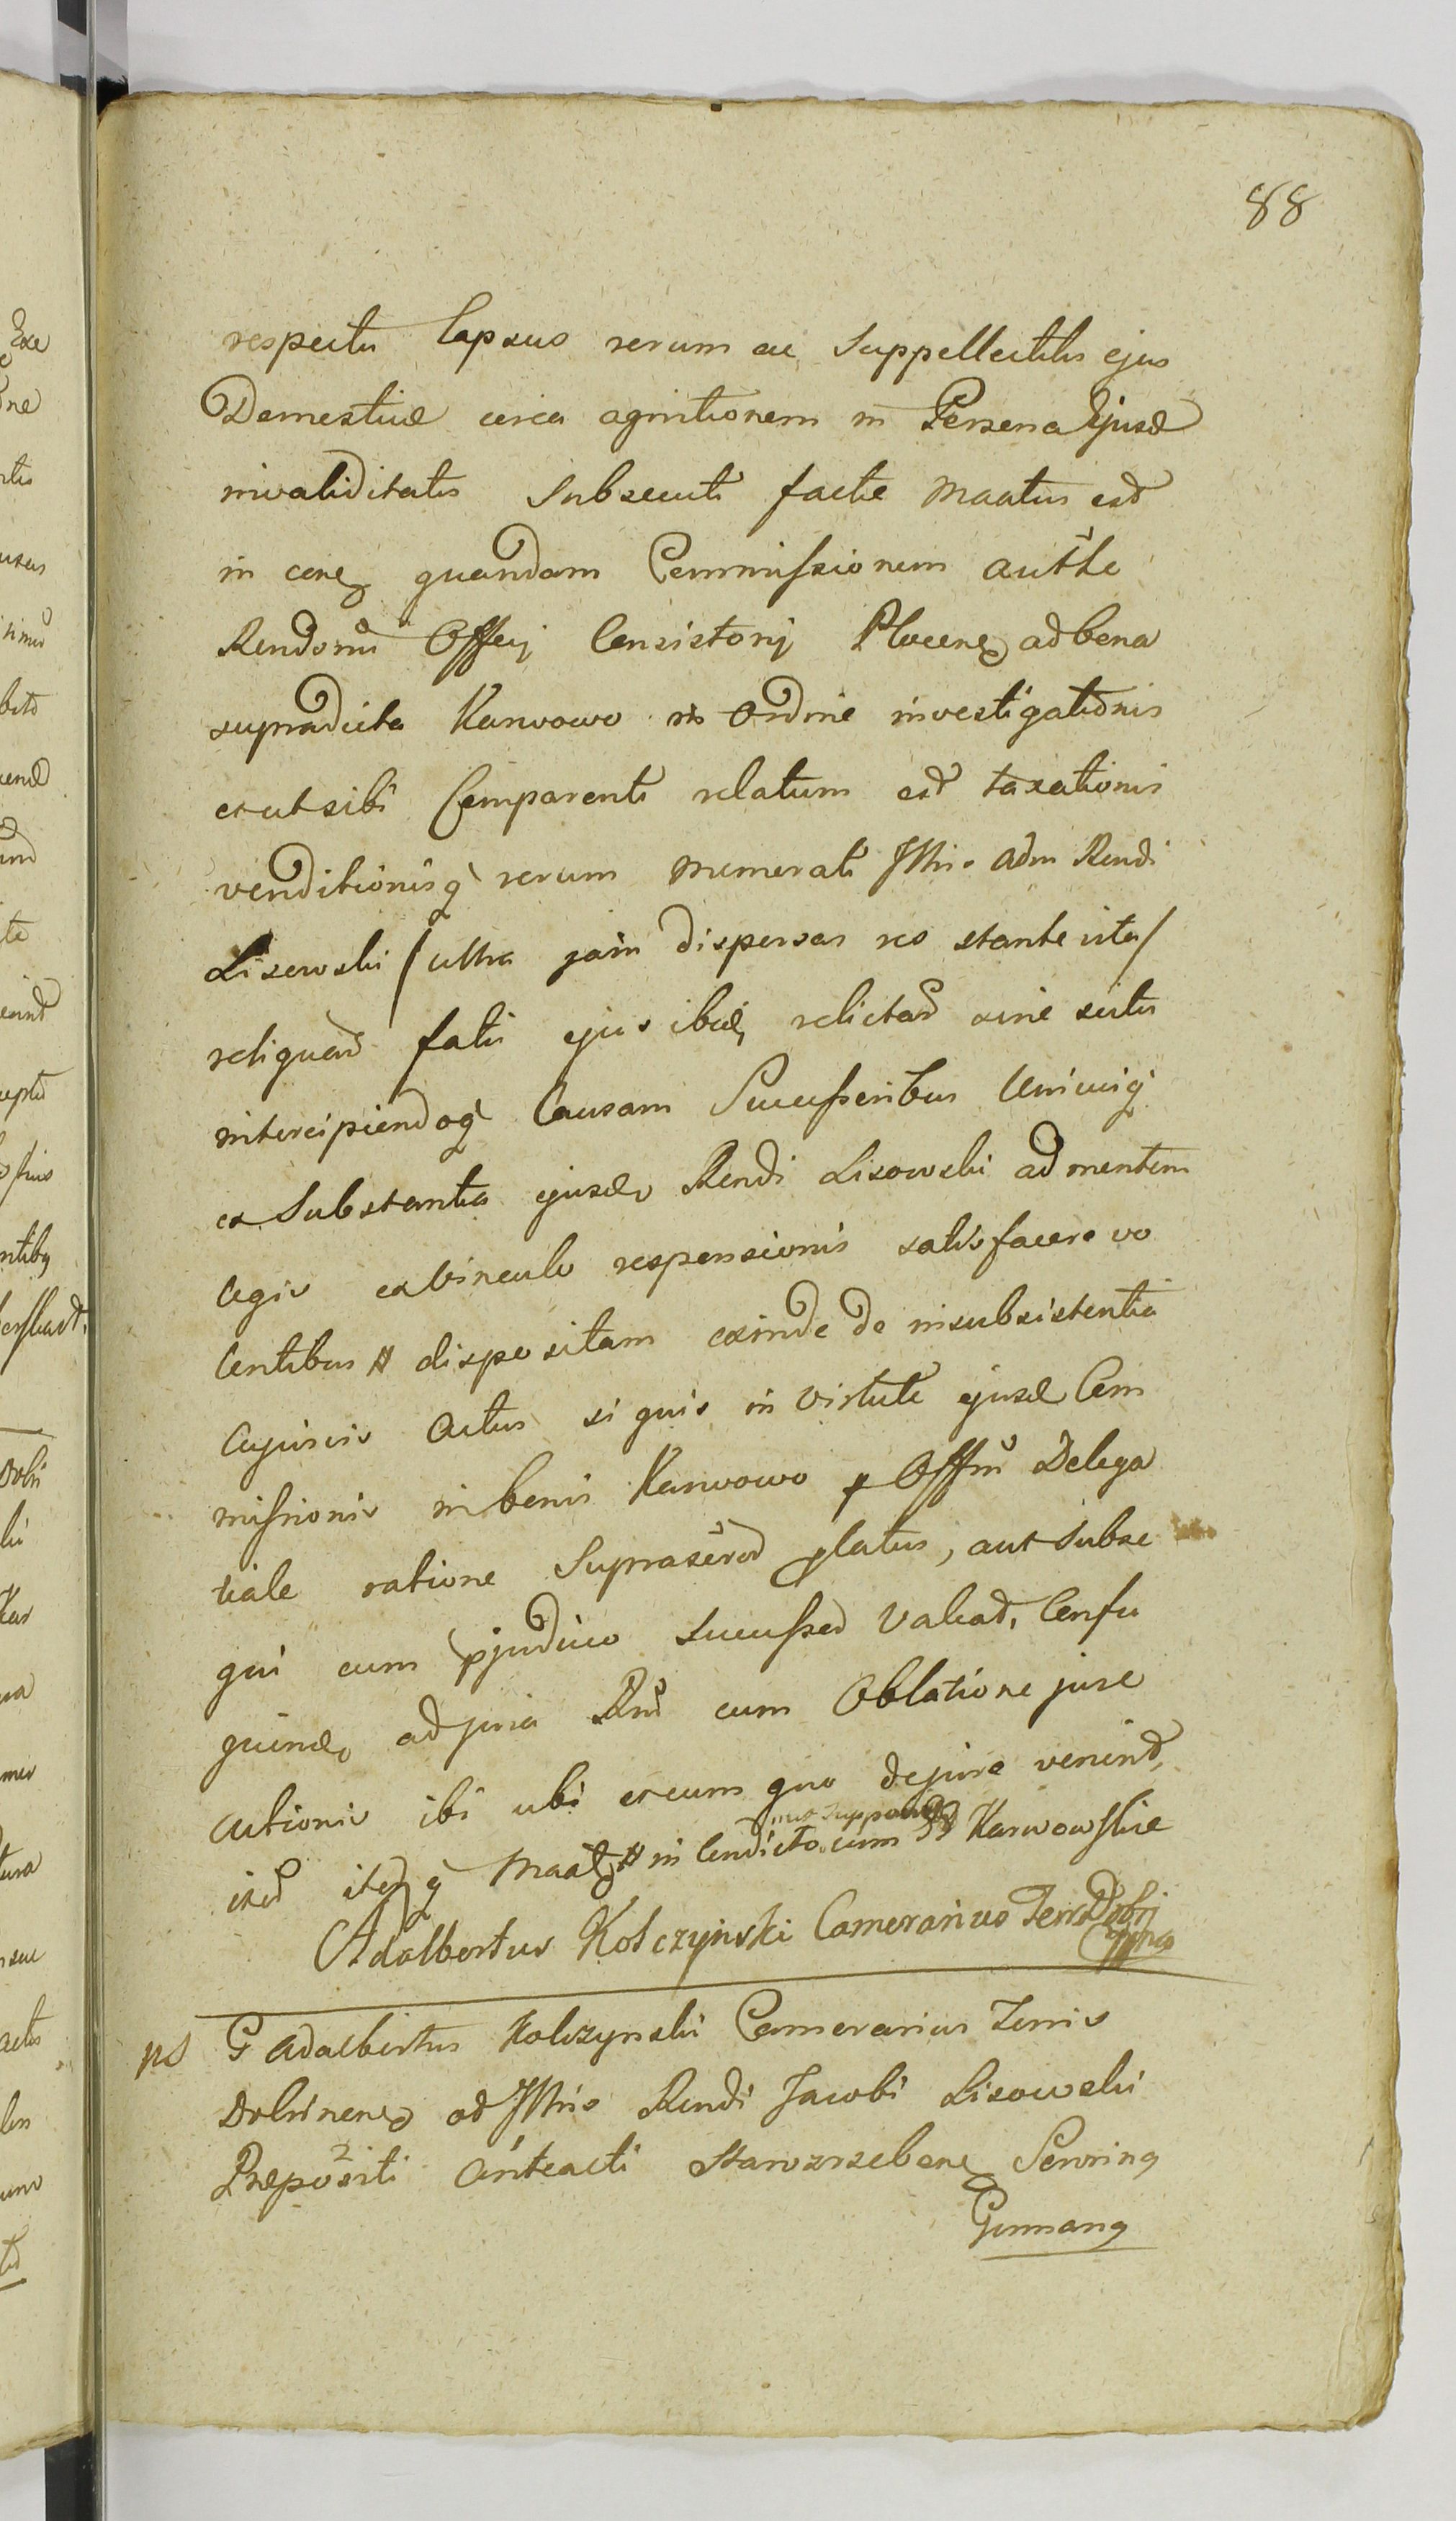 88
respectu lapsus rerum ac Suppellectilis ejus
Domesticæ circa agnitionem in Persona Ejusd
invaliditatis Subsecuti facte Maatus est
in cerneq quandam Commissionem autthe
Rendorum Officij Consistorij Plocens ad bona
supradicta Karwowo in Ordine investigationis
et ut sibi Comparenti relatum est taxationis
venditionisq rerum memorati Illris adm Rendi
Lisowski / ultra jam dispersas eo stante vita /
reliquas fatis ejus ibid relictas sine scitu
intercipiendoq Causam Successoribus Unicuiq
ex Substantia ejusd Rendi Lisowski ad mentem
legis ex vinculo responsionis satisfacere vo
lentibus # dispositam exinde de insubsistentia
cujusvis Actus si quis in virtute ejusd Com
missionis in bonis Karwowo p Offm Delega
tiale ratione Supraser platus, aut Subse
qui cum pjudicio Success Valeat, Consu
guind ad jura Rnd cum Oblatione jure
Actionis ibi ubi et cum quo de jure venerit,
itd itq Maat # in Condicto cum Karwowskie
Adalbertus Kolczyński Camerarius Terræ Dobri
G Adalbertus Kolczynski Camerarius Terris
Dobrinens ad Illris Rendi Jacobi Lisowski
Præpositi Anteacti Starozrebens Fratrinq
Germanq